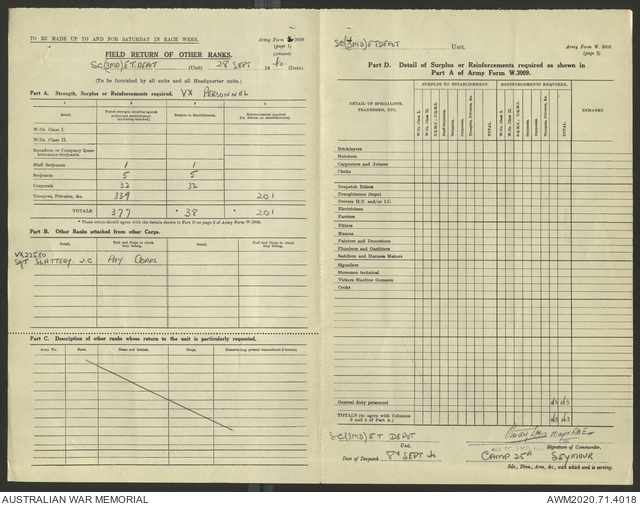 TO BE MADE UP TO AND FOR SATURDAY IN EACH WEEK.
Army Form W.3009
(page 1)
(Adapted)
FIELD RETURN OF OTHER RANKS.
SC(3MD) E.T. DEPOT (Unit) 28 SEPT 1940. (Date)
(To be furnished by all units and all Headquarter units.)
Part A. Strength, Surplus or Reinforcements required. VX PERSONNEL
1 2 3 4
Detail. Surplus to Establishment. Reinforcements required
W.Os. Class I.
W.Os. Class II.
Squadron or Company Quartermaster-Serjeants
Staff Serjeants 1 1
Serjeants 5 5
Corporals 32 32
Troopers, Privates, &c. 339 201
TOTALS 377 * 38 * 201
* These totals should agree with the details shown in Part D on page 2 of Army Form W.3009.
Part B. Other Ranks attached from other Corps.
Detail. Unit and Corps to which they belong. Detail. Unit and Corps to which they belong.
VX22580
Sgt SLATTERY. J.C. PAY CORPS
Part C. Description of other ranks whose return to the unit is particularly requested.
Army No. Rank. Name and Initials. Corps. Remarks (e.g. present whereabouts if known).
SC(3MD) E.T. DEPOT Unit.
Army Form W. 3009
(page 2)
Part D. Detail of Surplus or Reinforcements required as shown in
Part A of Army Form W.3009.
DETAIL OF SPECIALISTS, TRADESMEN, ETC.
SURPLUS TO ESTABLISHMENT. REINFORCEMENTS REQUIRED.
W.Os. Class I. W.Os. Class II. S.Q.M.S. : C.Q.M.S. Staff-Serjeants. Serjeants. Corporals. Troopers, Privates, &c. TOTAL.
W.Os. Class I. W.Os. Class II. S.Q.M.S. : C.Q.M.S. Serjeants. Corporals. Troopers, Privates, &c. TOTAL.
REMARKS.
Bricklayers
Butchers
Carpenters and Joiners
Clerks
Despatch Riders
Draughtsmen (topo)
Drivers H.T. and/or I.C.
Electricians
Farriers
Fitters
Masons
Painters and Decorators
Plumbers and Gasfitters
Saddlers and Harness Makers
Signallers
Storemen technical
Vickers Machine Gunners
Cooks
General duty personnel
TOTALS (to agree with Columns
3 and 4 of Part A.)
SC(3MD) E.T. DEPOT
Unit.
Major R.A.E.
Signature of Commander.
Date of Despatch SEPT 40
CAMP 25A SEYMOUR
Bde., Divn., Area, &c., with which unit is serving.
AUSTRALIAN WAR MEMORIAL
AWM2020.71.4018